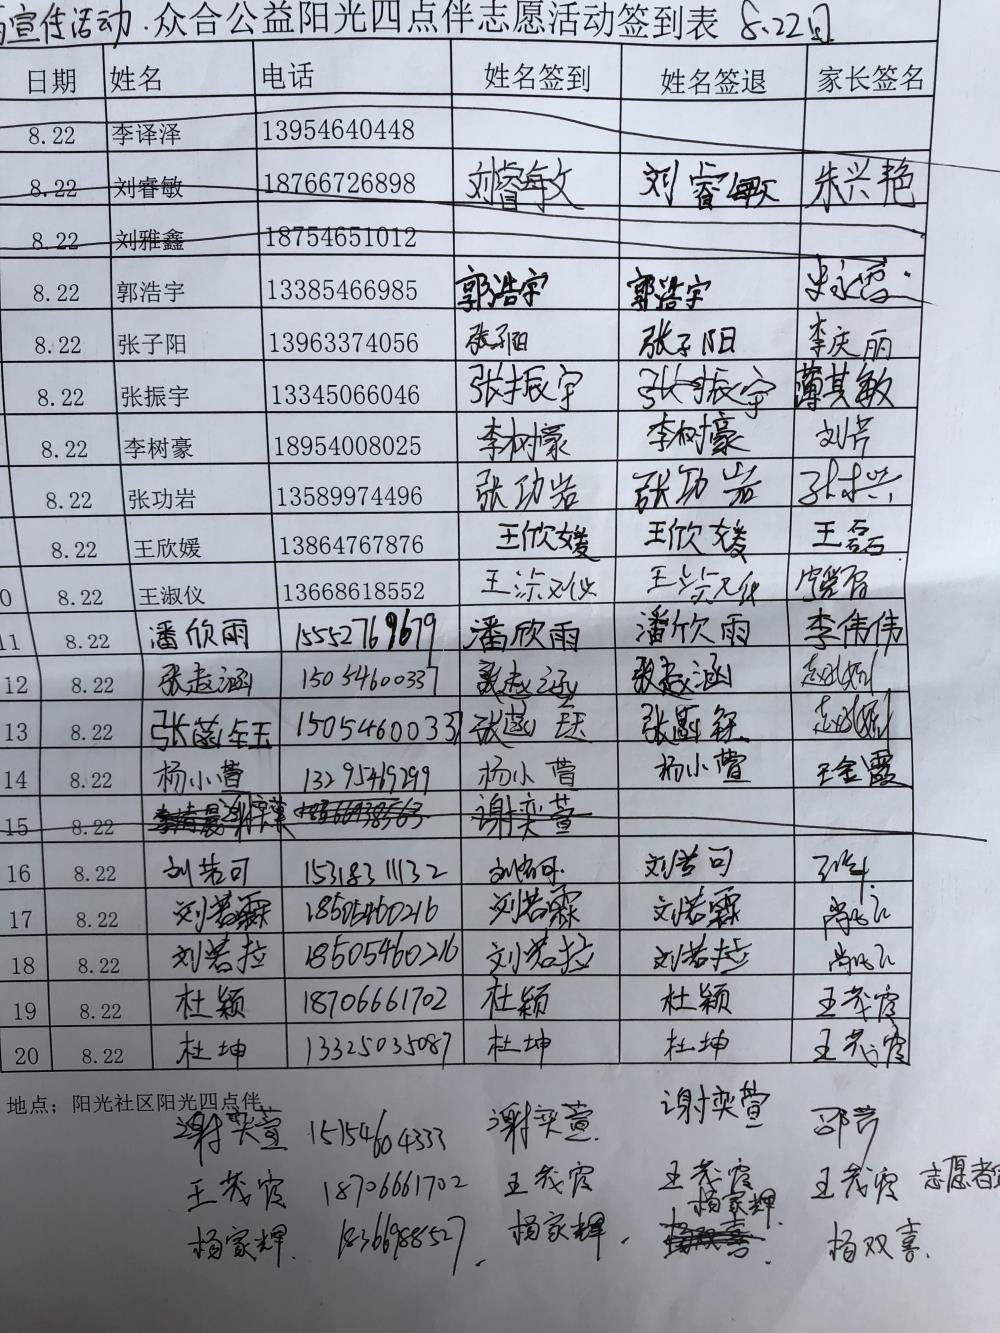 宣传活动.众合公益阳光四点伴志愿活动签到表 8.22日
日期 姓名 电话 姓名签到 姓名签退 家长签名
8.22 李译泽 13954640448
8.22 刘睿敏 18766726898 刘睿敏 刘睿敏 朱兴艳
8.22 刘雅鑫 18754651012
8.22 郭浩宇 13385466985 郭浩宇 郭浩宇
8.22 张子阳 13963374056 张子阳 张子阳 李庆丽
8.22 张振宇 13345066046 张振宇 张振宇 薄其敏
8.22 李树豪 18954008025 李树豪 李树豪 刘芹
8.22 张功岩 13589974496 张功岩 张功岩
8.22 王欣媛 13864767876 王欣媛 王欣媛 王磊
0 8.22 王淑仪 13668618552 王淑仪 王淑仪
11 8.22 潘欣雨 15552769679 潘欣雨 潘欣雨 李伟伟
12 8.22 张赵涵 15054600337 张赵涵 张赵涵
13 8.22 15054600337
14 8.22 杨小萱 13295419299 杨小萱 杨小萱 王金霞
15 8.22 谢奕萱
16 8.22 刘若可 15318311132 刘若可 刘若可
17 8.22 刘若霖 18505460216 刘若霖 刘若霖
18 8.22 刘若拉 18505460216 刘若拉 刘若拉
19 8.22 杜颖 18706661702 杜颖 杜颖 王茂霞
20 8.22 杜坤 13325035087 杜坤 杜坤 王茂霞
地点；阳光社区阳光四点伴
谢奕萱 15154604333 谢奕萱 谢奕萱 邵芹
王茂霞 18706661702 王茂霞 王茂霞 王茂霞 志愿者
杨家辉. 18366988527, 杨家辉. 杨家辉. 杨双喜.